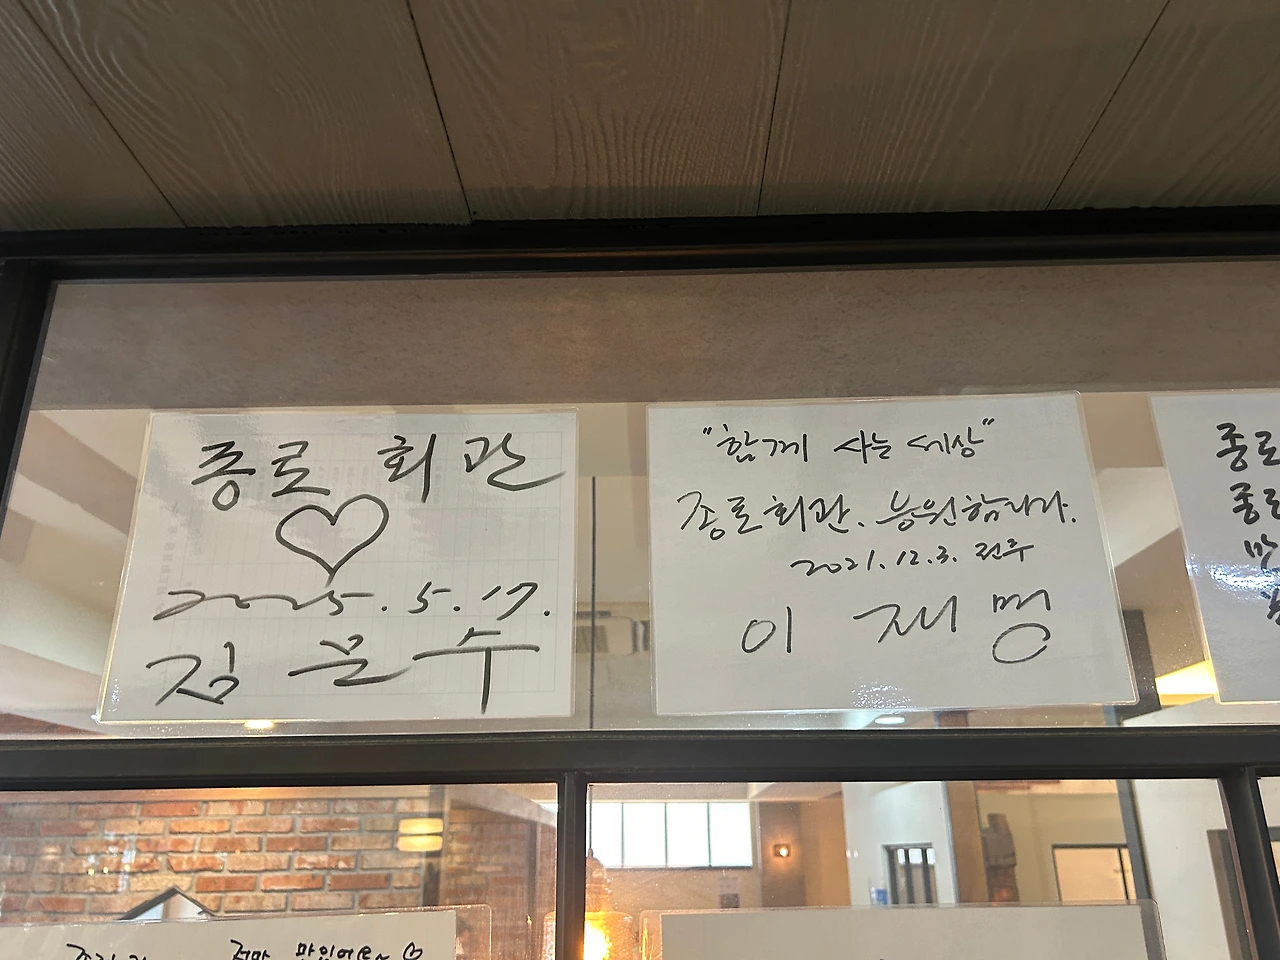 종로 회관
2025. 5. 17.
김문수
"함께 사는 세상"
종로회관. 응원합니다.
2021. 12. 3. 전주
이재명
종로
종로
맛
정말 맛있어요~